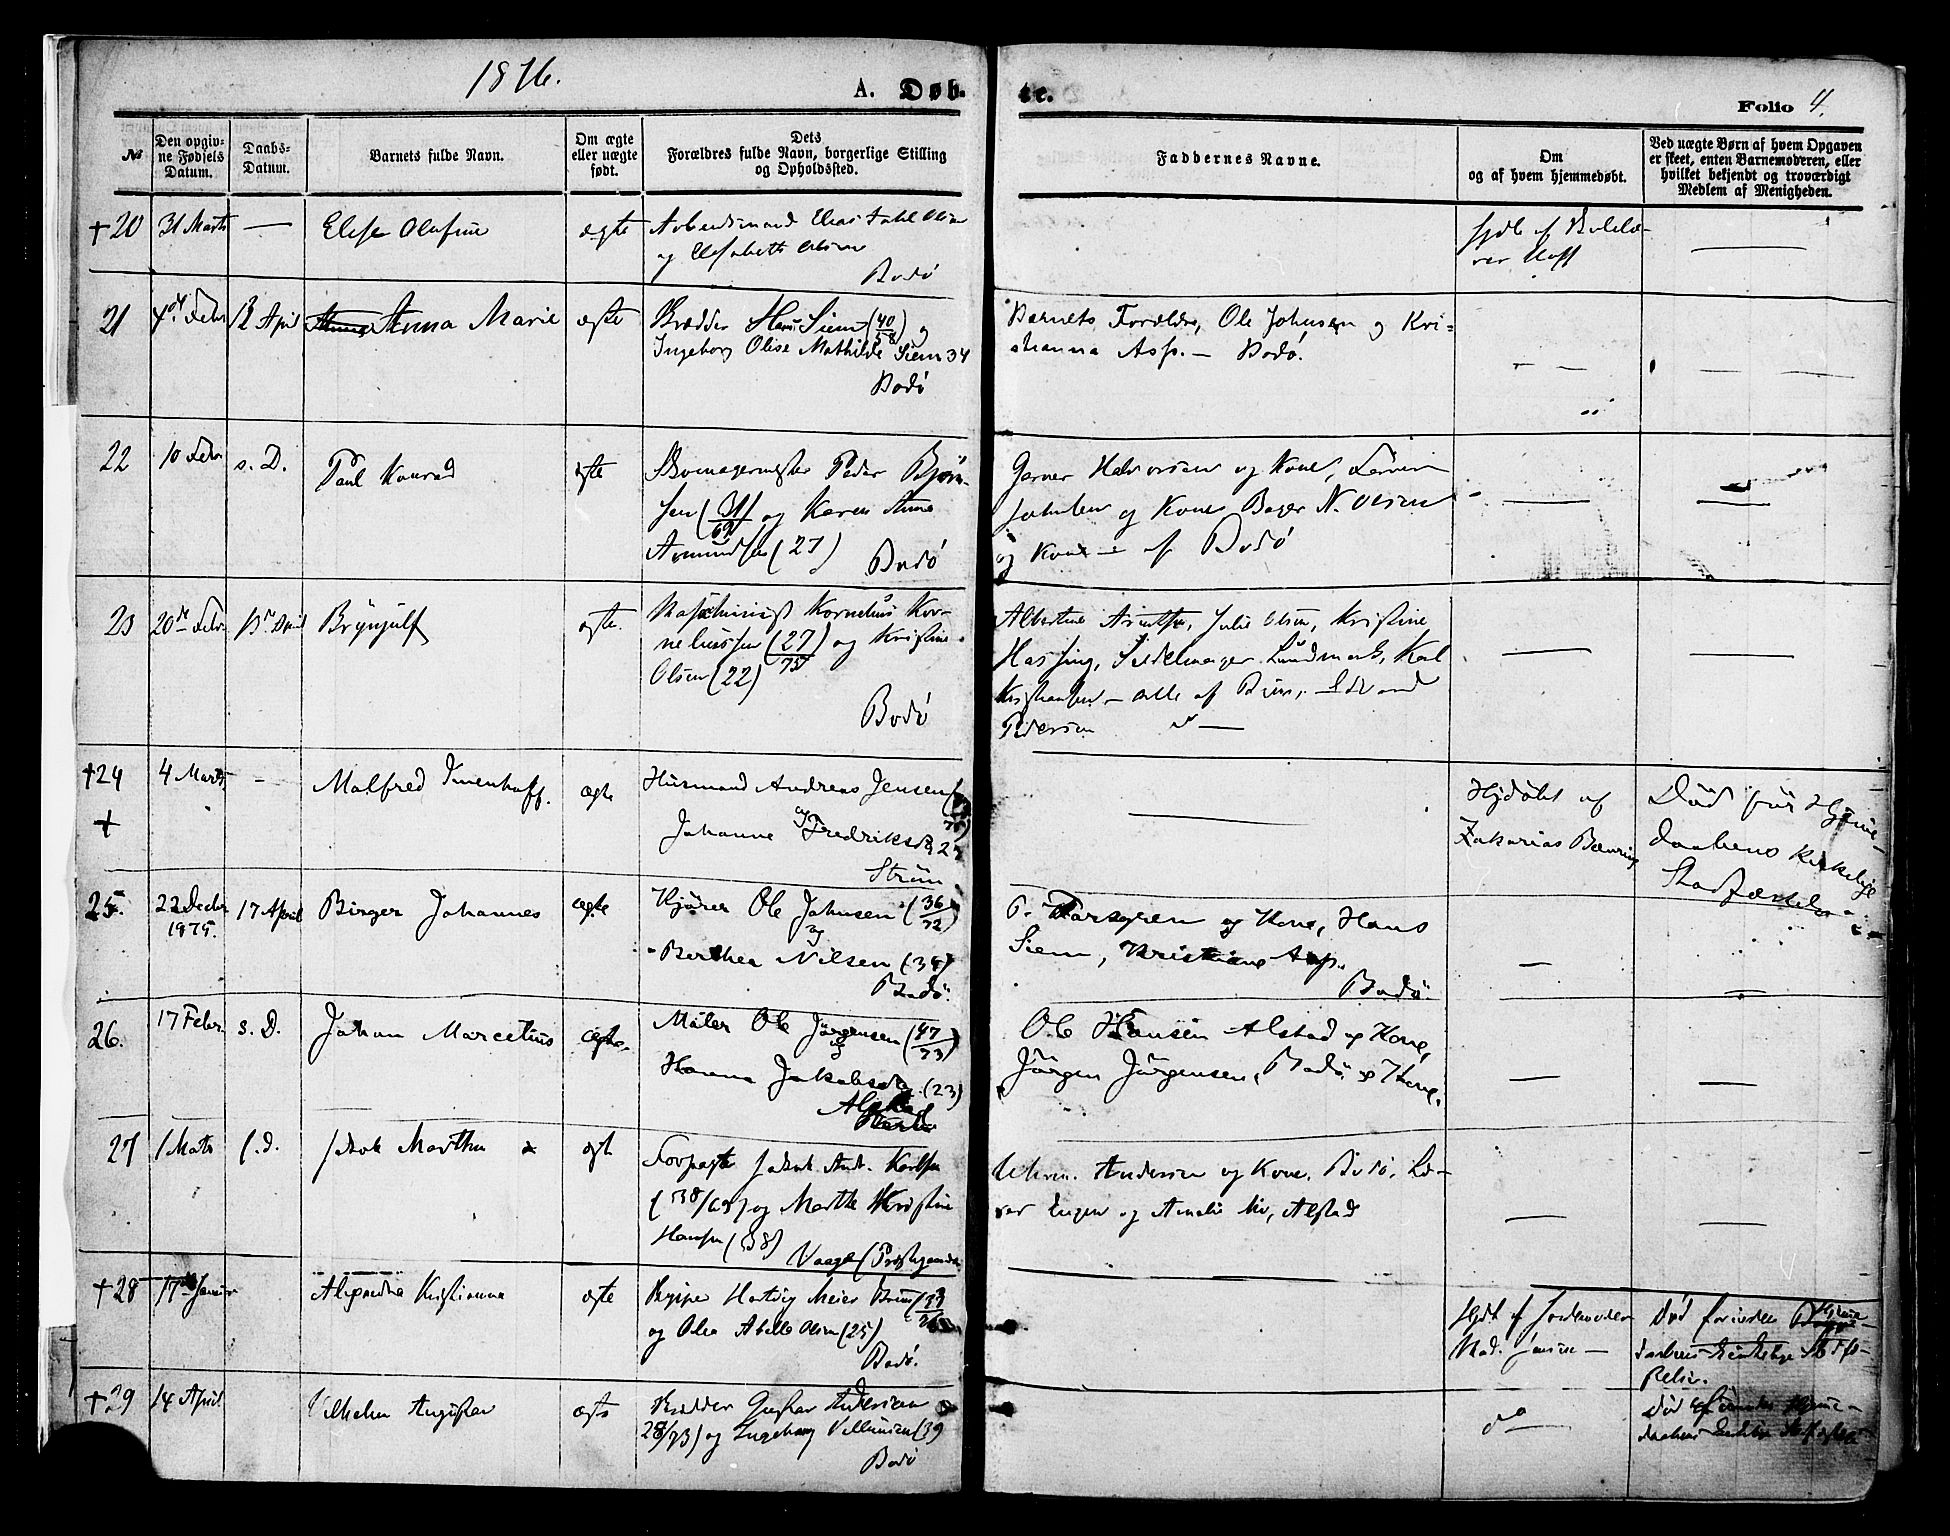 1876.
A. Døb-
te.
Folio 4.
№
Den opgiv-
ne Fødsels
Datum.
Daabs-
Datum.
Barnets fulde Navn.
Om ægte
eller uægte
født.
Dets
Forældres fulde Navn, borgerlige Stilling
og Opholdssted.
Faddernes Navne.
Om
og af hvem hjemmedøbt.
Ved uægte Børn af hvem Opgaven
er skeet, enten Barnemoderen, eller
hvilket bekjendt og troværdigt
Medlem af Menigheden.
+20 31 Marts — Elise Olufine ægte Arbeidsmand Elias Dahl Olsen
og Elisabeth Olsen
Bodø
Hjdbt af
—
21 4de Febr 12 April Anna Marie ægte Kræmmer Hans Siem (40/58) og
Ingeborg Olise Mathilde Siem 34
Bodø
Barnets Forældre, Ole Johnsen og Kri-
stianna Asp. — Bodø.
22 10 Febr s. D. Paul Konrad ægte Skomagermester Peder Björn-
sen (31/69) og Karen Anna
Amundsen (27) Bodø
Garver Halvorsen og Kone,
Johnsen og Kone Bager N. Olsen
og Kone — af Bodø
23 20de Febr 13de April Brynjulf ægte. Maschinist Kornelius Kor-
neliussen (27/75) og Kristine
Olsen (22)
Bodø
Albertine Arntsen, Julie Olsen, Kristine
Hassing, Seidelmager Lundmark, Karl
Kristiansen — alle af Byen, Edvard
Pedersen do —
+24 4 Marts — Malfred Imenhoff. ægte Husmand Andreas Jensen
og
Johanne Fredriksd. 27
Ström
Hjdöbt af
Zakarias
Död før Hjemme-
daabens kirkelige
Stadfæstelse
+
25. 22 Decbr
1875.
17 April Birger Johannes ægte Kjører Ole Johnsen (36/72)
og
Berthea Nilsen (34)
Bodø.
P. Forsgren og Kone, Hans
Siem, Kristiane Asp.
Bodø.
26. 17 Febr. s. D. Johan Marcelius ægte. Maler Ole Jørgensen (47/73)
og
Hanna Jakobsd. (23)
Alstad
Ole Hansen Alstad og Kone,
Jörgen Jörgensen, Bodø og Kone.
27 1 Mats s. d. Jakob Marthin ægt Forpagter Jakob Andr. Karlsen
(38/69) og Marthe Kristine
Hansen (38)
Vaage (Præstegaarden
Chrn. Andersen og Kone, Bodø, Læ-
rer Engen og Amalie Mo, Alstad
+28 17de Januar Alexandra Kristianna ægte Skipper Hartvig Meier Brun
og Olea Abelle Olsen (25)
Bodø.
Hjdt af Jordemoder
Mad. Jensen —
Död forinden Hjemme-
daabens kirkelige Stadfæ-
stelse.
+29 14 April Vilhelm Augustar ægte Kræmmer Gustav Andersen
28/73) og Ingeborg Villumsen (39
Bodø
do —
Död forinden Hjemme-
daabens kirkelige Stadfæstelse